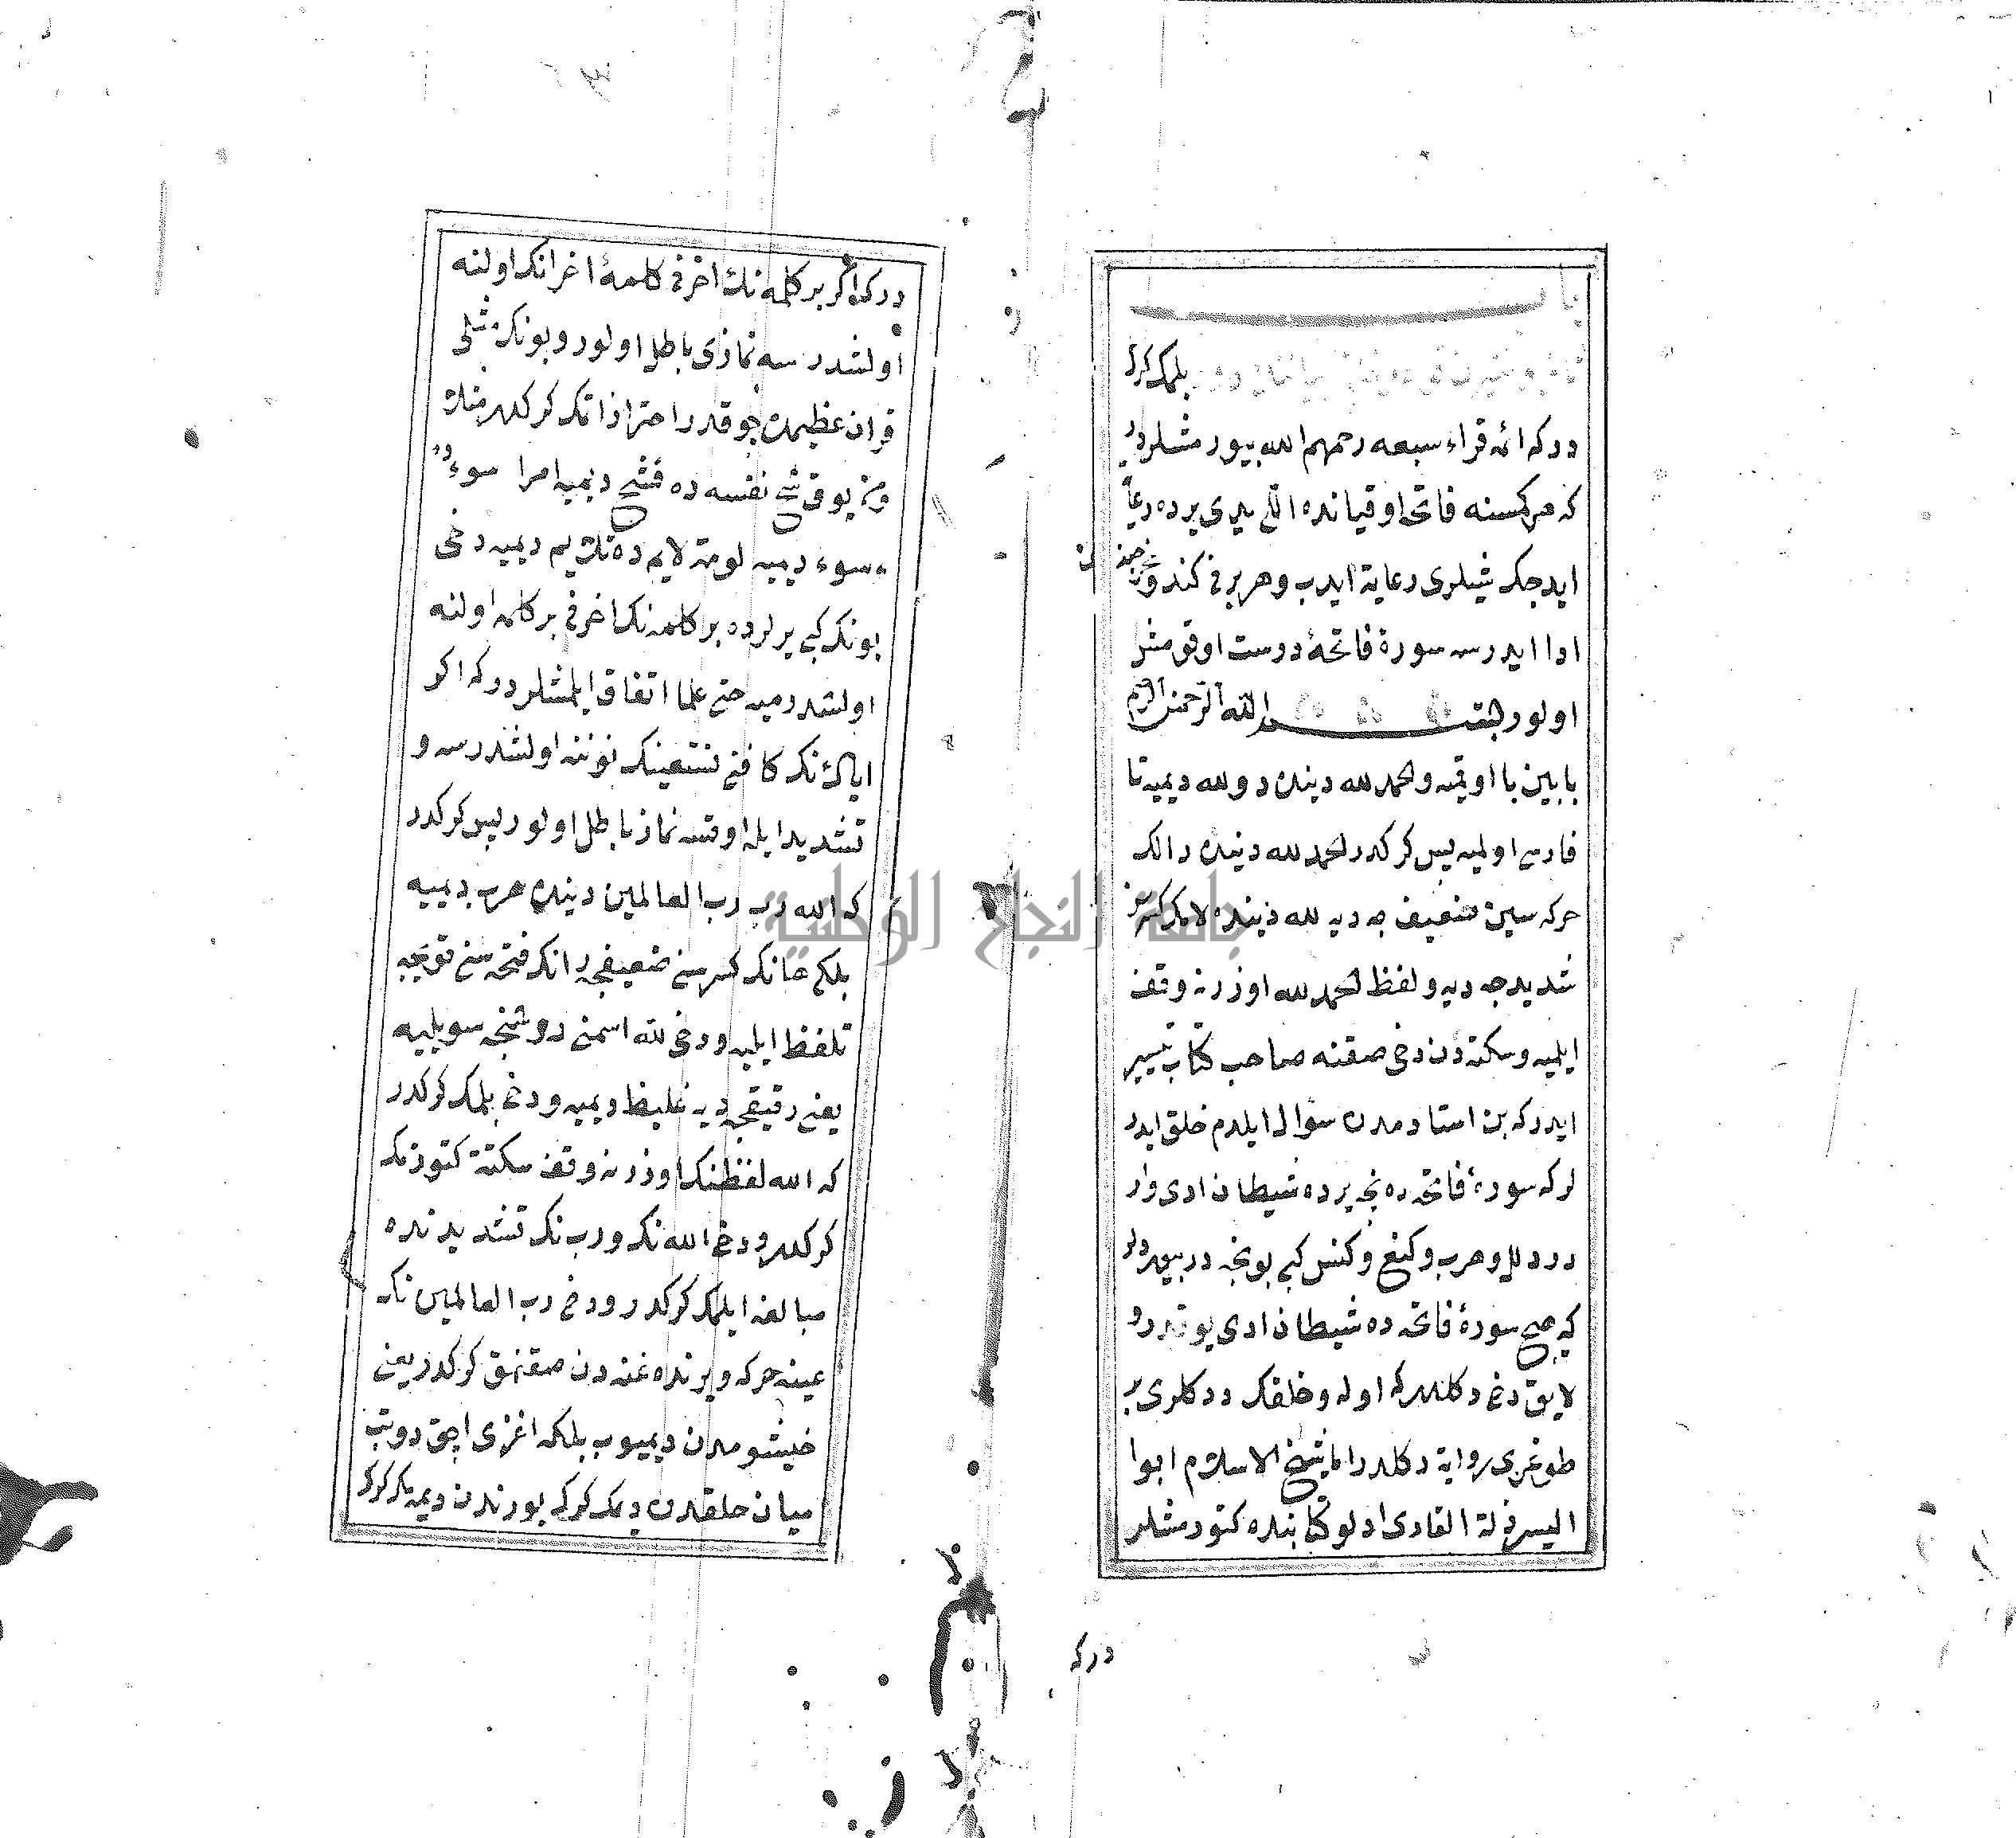 باب
بلمك كرك
در كه ائمه قراء سبعه رحمهم الله بيورمشلردر
كه هر كمسنه فاتحه اوقيانده اللي يدى يرده رعاية
ايدجك شيلرى رعاية ايدب وهر برفى كندو مخرجندن
ادا ايدرسه سورة فاتحۀ درست اوقومش
اولور بسم الله الرحمن الرحيم
بابين با اوقميه والحمد لله دينده دو لله ديميه تا
فارسى اولميه پس كركدر الحمد لله دينده دالك
حركه سين ضعيف جه ديه لله دينده لامك كسره سن
شديد جه ديه ولفظ الحمد لله اوزرنه وقف
ايلميه وسكته دن دخى صقنه صاحب كتاب تيسير
ايدر كه بن استادمدن سؤال ايلدم خلق ايدر
لر كه سورۀ فاتحه ده نجه يرده شيطان ادى وار
در دلل وهرب وكنع وكنس كبى بو نجه در بيورديلر
كه هيچ سورۀ فاتحه ده شيطان ادى يوقدر و
لايق دخى دكلدر كه اوله وخلقك ددكلرى بر
طوغرى رواية دكلدر اما شيخ الاسلام ابوا
اليسر زلة القارى ادلو كتابنده كتورمشلر
در كه
در كه اگر بر كلمه نك اخرفى كلمۀ اخرانك اولنه
اولشدرسه نمازى باطل اولور وبونك مثلى
قران عظيمده چوقدر احتراز اتمك كركدر مثلا
من يوق شح نفسه ده فشح ديميه امرا سوء ده
ءسوء ديميه لومة لايم ده تلايم ديميه دخى
بونك كبى يرلرده بر كلمه نك اخرفى بر كلمه اولنه
اولشدرميه حتى علما اتفاق ايلمشلردر كه اكر
اياك نك كافنى نستعينك نوننه اولشدرسه و
تشديد ايله اوقسه نماز باطل اولور پس كركدر
كه الله رب رب العالمين دينده هرب ديميه
بلكه هانك كسره سنى ضعيفجه رانك فتحه سنى قويجه
تلفظ ايليه ودخى لله اسمنى روشنجه سويليه
يعنى رقيقجه ديه غليظ ديميه ودخى بلمك كركدر
كه الله لفظنك اوزرنه وقف سكتة كتورمك
كركدر ودخى الله نك ورب نك تشديدنده
مبالغه ايلمك كركدر ودخى رب العالمين نك
عينه حركه ويرنده غنه دن صقنمق كركدر يعنى
خيشومدن ديميوب بلكه اغزى اچق دوتب
ميان حلقدن ديمك كرك بورندن ديمه مك كرك
جامعة النجاح الوطنية